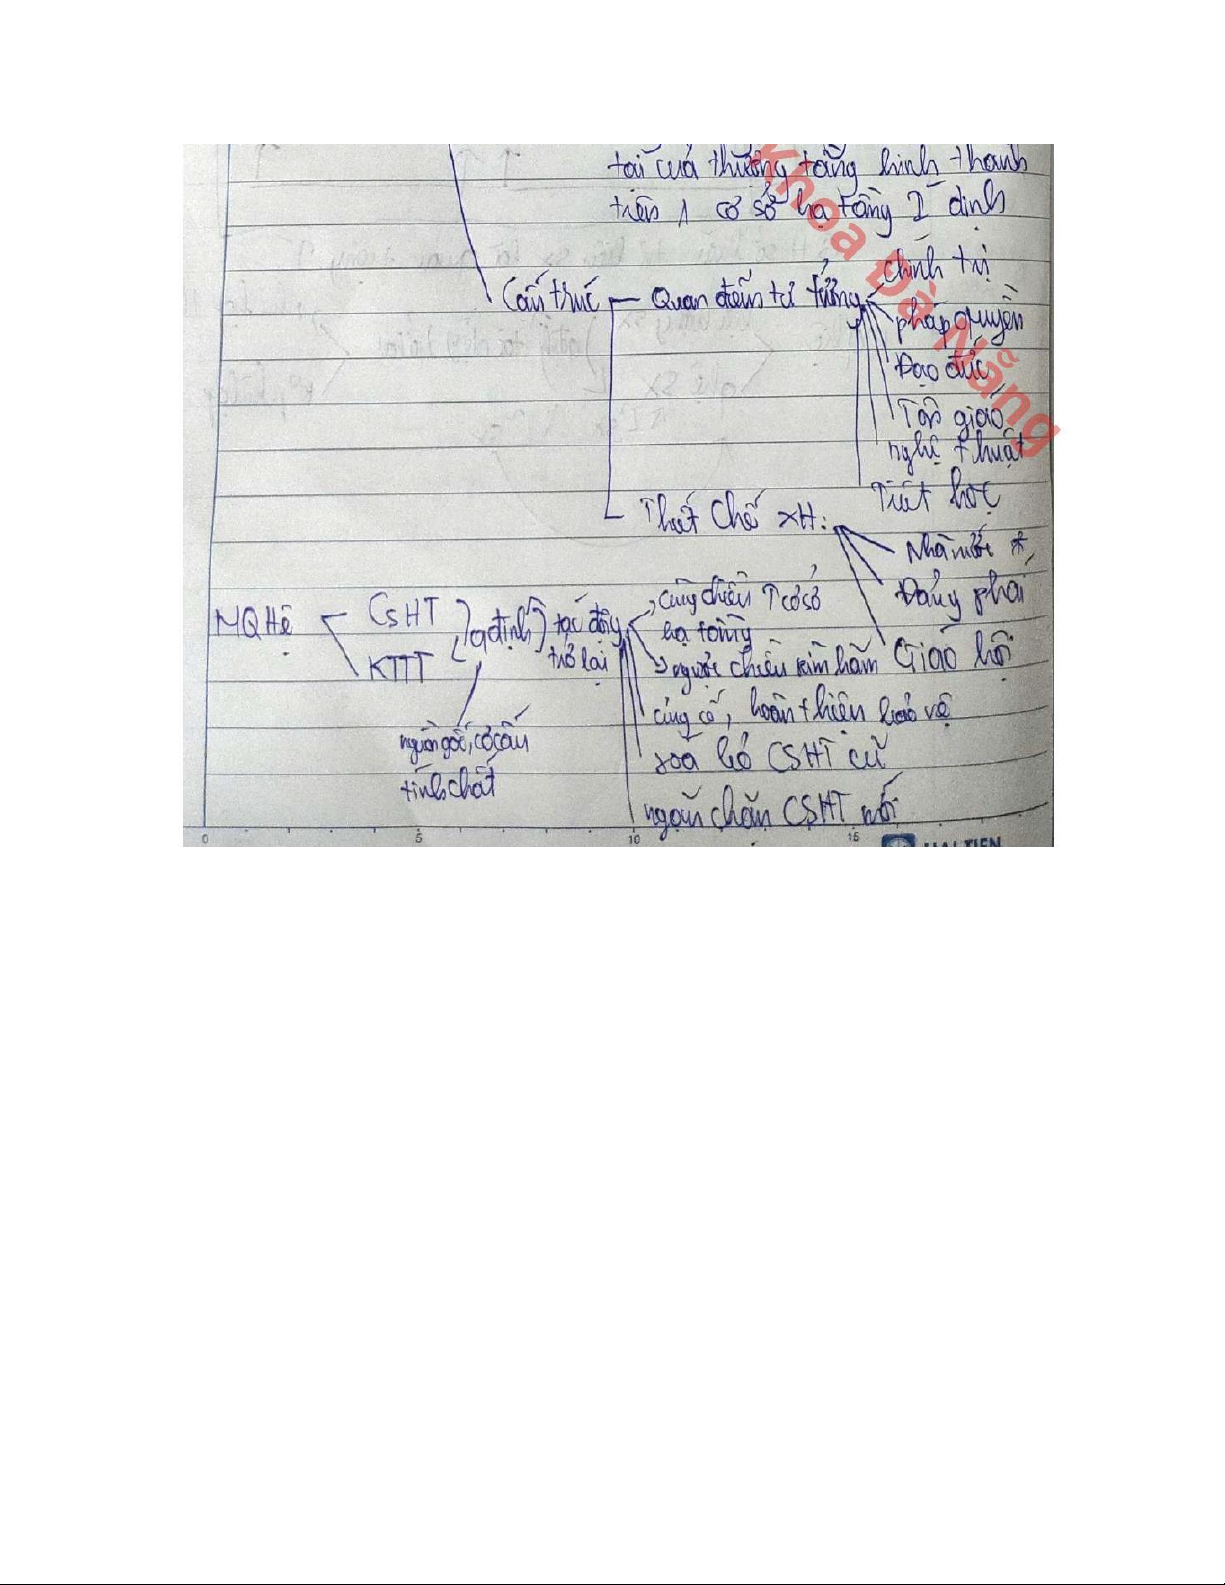 tại của thượng tầng hình thành
trên 1 cơ sở hạ tầng I định
Khoa Đà Nẵng
chính trị
Cấu trúc Quan điểm tư tưởng
pháp quyền
Đạo đức
Tôn giáo
nghệ thuật
Tiết học
Thiết Chế XH:
Nhà nước *
Đảng phái
Giáo hội
MQ Hệ CSHT qđịnh tác động
KTTT trở lại
cùng chiều ↑ cơ sở
hạ tầng
ngược chiều kìm hãm
củng cố, hoàn thiện bảo vệ
nguồn gốc, cơ cấu
tính chất
xoá bỏ CSHT cũ
ngăn chặn CSHT mới
0 5 10 15
HẢI TIẾN